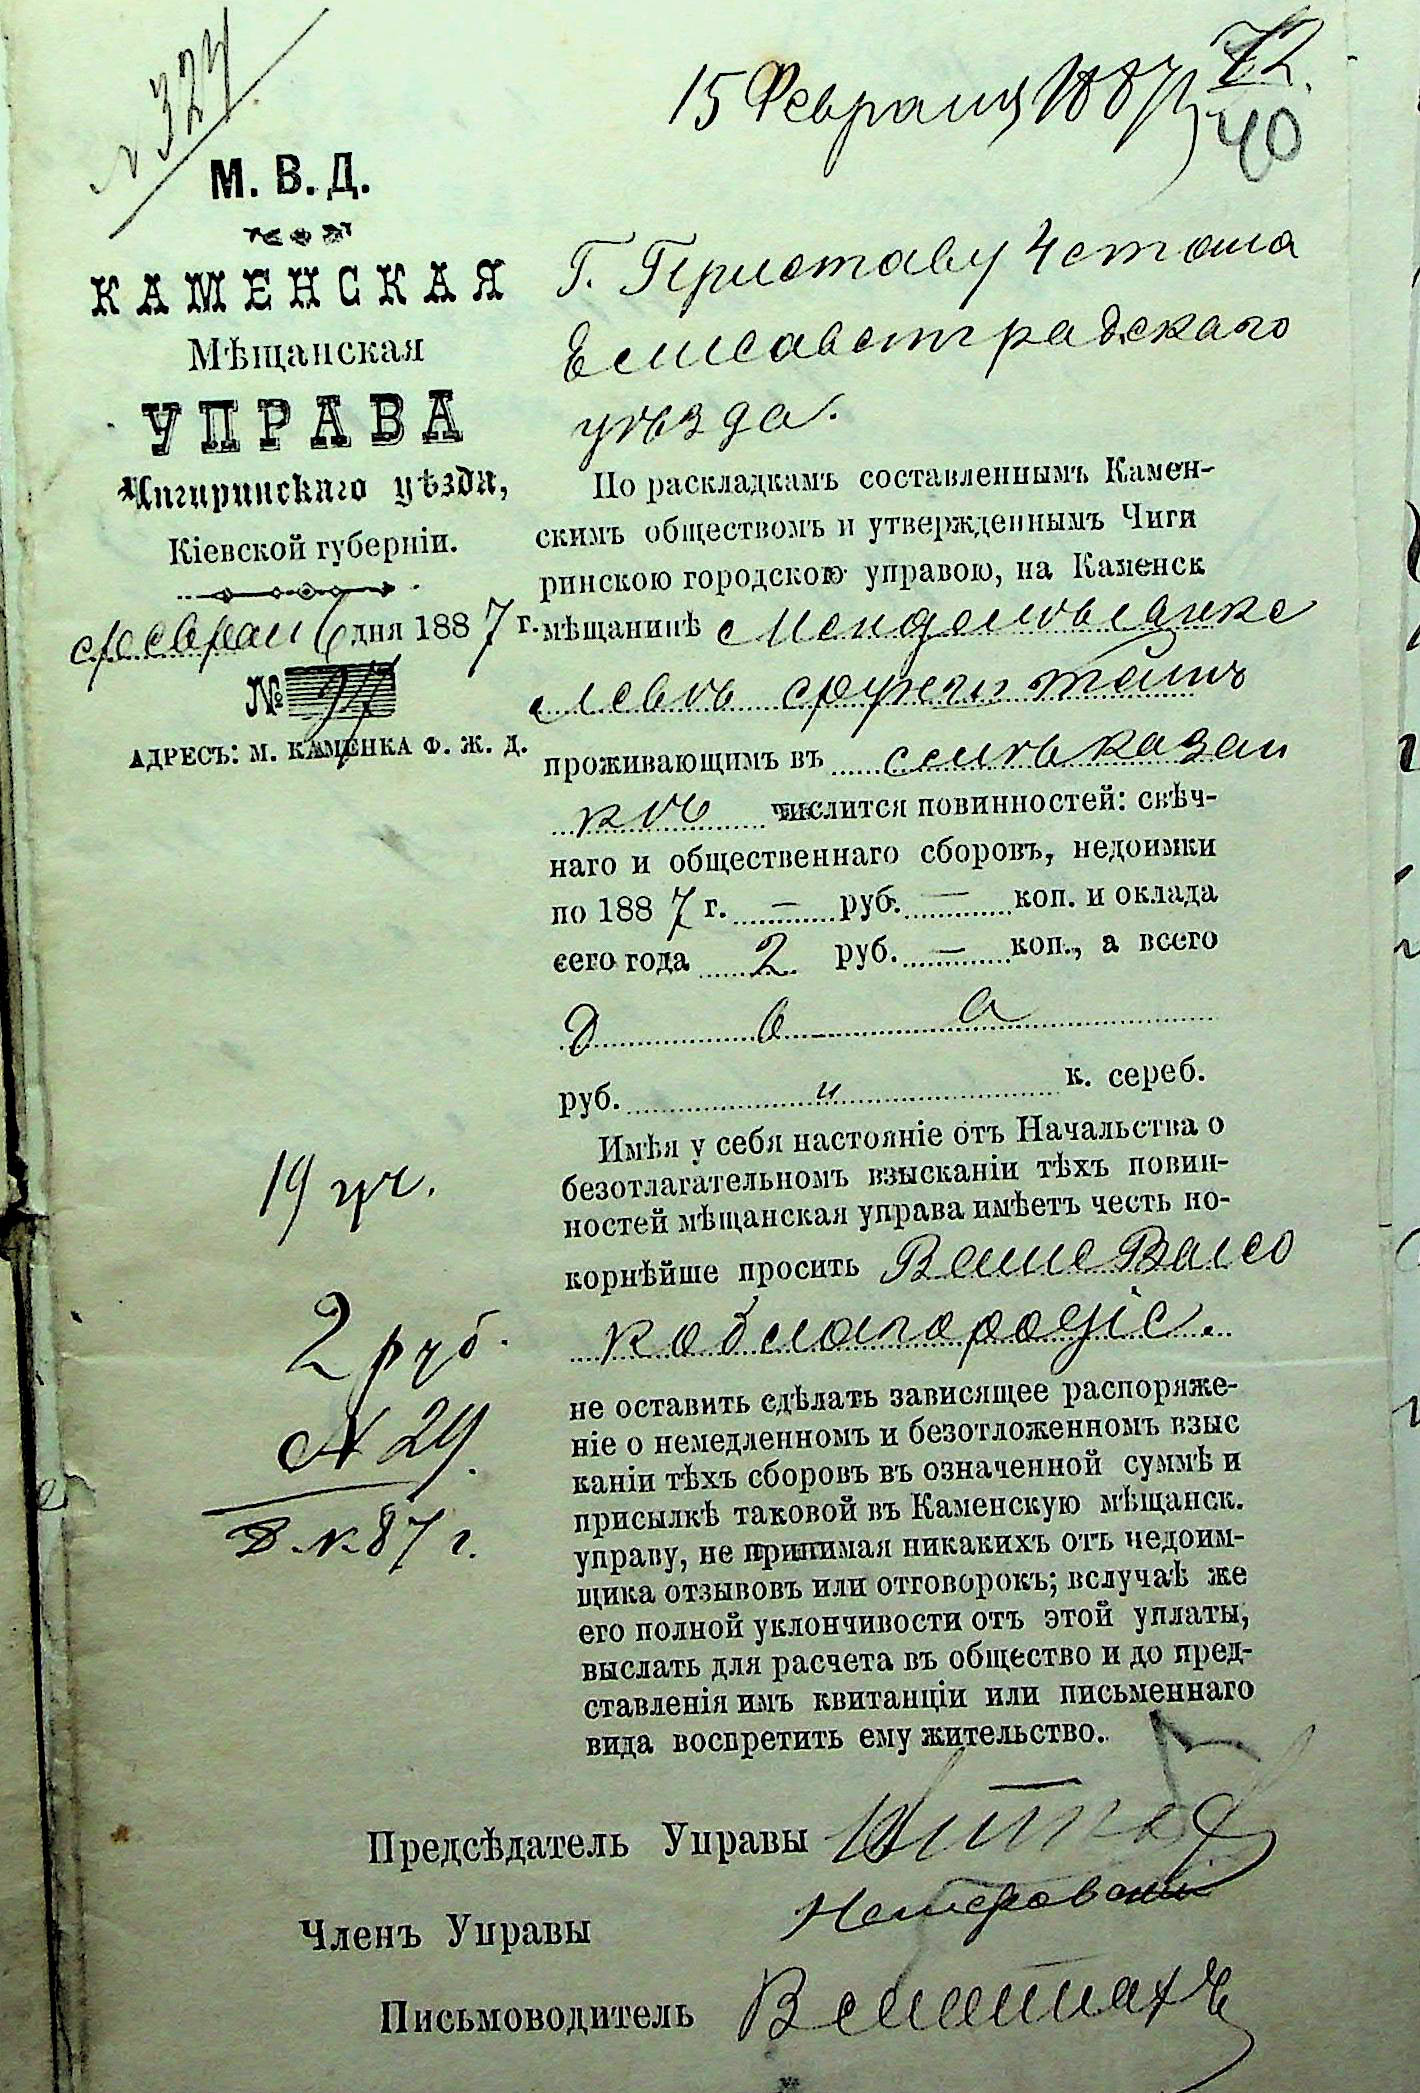 № 324
15 Февраля 1887 г.
72
40
М. В. Д.
КАМЕНСКАЯ
Мѣщанская
УПРАВА
Чигиринскаго уѣзда,
Кіевской губерніи.
февраля 6 дня 1887 г.
№ 97
АДРЕСЪ: М. КАМЕНКА Ф. Ж. Д.
Г. Приставу 4 стана
Елисаветградскаго
уѣзда.
По раскладкамъ составленнымъ Камен-
скимъ обществомъ и утвержденнымъ Чиги
ринскою городскою управою, на Каменск
мѣщанинѣ
проживающимъ въ селѣ Казан
кѣ числится повинностей: свѣч-
наго и общественнаго сборовъ, недоимки
по 1887 г. — руб. — коп. и оклада
сего года 2 руб. — коп., а всего
Два
руб. и к. сереб.
Имѣя у себя настояніе отъ Начальства о
безотлагательномъ взысканіи тѣхъ повин-
ностей мѣщанская управа имѣетъ честь по-
корнѣйше просить Ваше Высо
коблагородіе.
не оставить сдѣлать зависящее распоряже-
ніе о немедленномъ и безотложенномъ взыс
каніи тѣхъ сборовъ въ означенной суммѣ и
присылкѣ таковой въ Каменскую мѣщанск.
управу, не принимая никакихъ отъ недоим-
щика отзывовъ или отговорокъ; вслучаѣ же
его полной уклончивости отъ этой уплаты,
выслать для расчета въ общество и до пред-
ставленія имъ квитанціи или письменнаго
вида воспретить ему жительство.
19
2 руб.
№ 29
87 г.
Предсѣдатель Управы
Членъ Управы
Письмоводитель